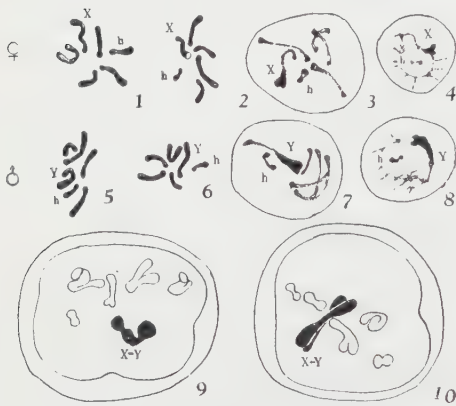 ♀ X h h 1 2 X h 3 h X 4
♂ Y h 5 Y h 6 Y h 7 h Y 8
X-Y 9 X-Y 10